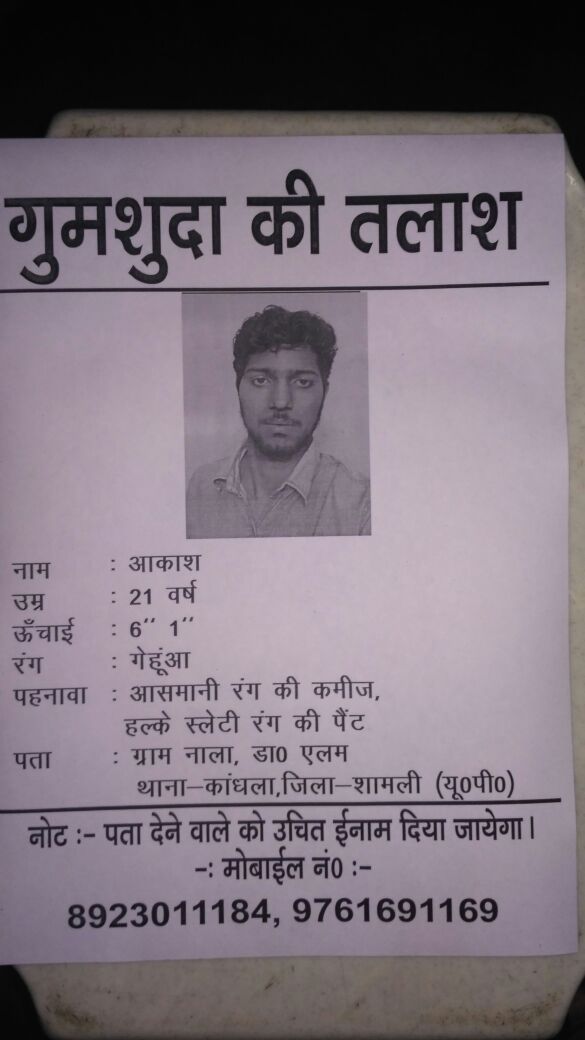 गुमशुदा की तलाश
नाम : आकाश
उम्र : 21 वर्ष
ऊँचाई : 6’’ 1’’
रंग : गेहूंआ
पहनावा : आसमानी रंग की कमीज,
हल्के स्लेटी रंग की पैंट
पता : ग्राम नाला, डा0 एलम
थाना–कांधला,जिला–शामली (यू0पी0)
नोट :- पता देने वाले को उचित ईनाम दिया जायेगा।
-: मोबाईल नं0 :-
8923011184, 9761691169